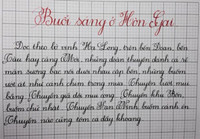 Buổi sáng ở Hòn Gai
Dọc theo lề vịnh Hạ Long, trên bến Đoan, bến
Tàu hay cảng Mới, những đoàn thuyền đánh cá rẽ
màn sương bạc nối đuôi nhau cập bến, những buồm
ướt át như cánh chim trong mưa. Thuyền lưới mui
bằng. Thuyền giã đôi mui cong. Thuyền khu Bốn
buồm chữ nhật. Thuyền Vạn Ninh buồm cánh én.
Thuyền nào cũng tôm cá đầy khoang.